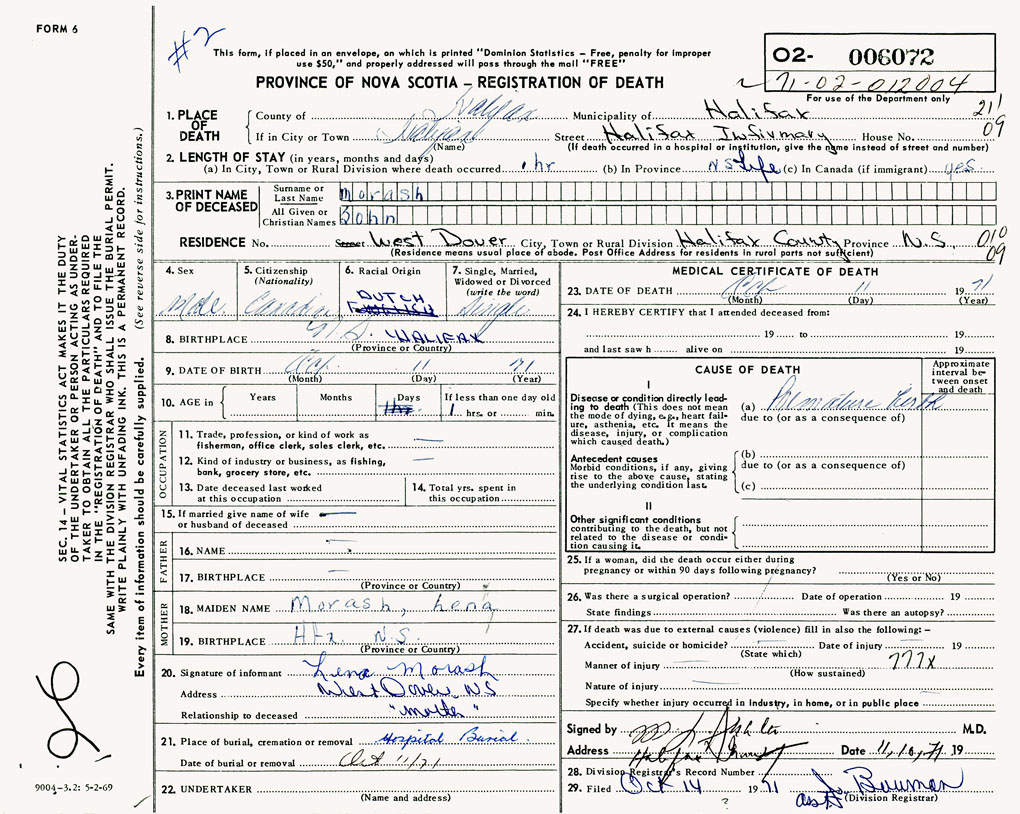 FORM 6
#2
This form, if placed in an envelope, on which is printed "Dominion Statistics – Free, penalty for improper
use $50," and properly addressed will pass through the mail "FREE"
PROVINCE OF NOVA SCOTIA – REGISTRATION OF DEATH
O2- 006072
71-02-012004
For use of the Department only
1. PLACE OF DEATH
County of Halifax Municipality of Halifax 211
If in City or Town Halifax Street Halifax Infirmary House No. 09
(Name) (If death occurred in a hospital or institution, give the name instead of street and number)
2. LENGTH OF STAY (in years, months and days)
(a) In City, Town or Rural Division where death occurred 1 hr (b) In Province NS Life (c) In Canada (if immigrant) yes
3. PRINT NAME OF DECEASED
Surname or Last Name Morash
All Given or Christian Names John
RESIDENCE No. Street West Dover City, Town or Rural Division Halifax County Province N.S. 010
(Residence means usual place of abode. Post Office Address for residents in rural parts not sufficient) 09
4. Sex Male
5. Citizenship (Nationality) Canadian
6. Racial Origin DUTCH
7. Single, Married, Widowed or Divorced (write the word) Single
8. BIRTHPLACE N.S. HALIFAX
(Province or Country)
9. DATE OF BIRTH Oct 11 71
(Month) (Day) (Year)
10. AGE in Years Months Days If less than one day old
1 hrs. or min.
OCCUPATION
11. Trade, profession, or kind of work as
fisherman, office clerk, sales clerk, etc.
12. Kind of industry or business, as fishing,
bank, grocery store, etc.
13. Date deceased last worked
at this occupation
14. Total yrs. spent in
this occupation
15. If married give name of wife
or husband of deceased
FATHER
16. NAME
17. BIRTHPLACE
(Province or Country)
MOTHER
18. MAIDEN NAME Morash, Lena
19. BIRTHPLACE Hfx. N.S.
(Province or Country)
20. Signature of informant Lena Morash
Address West Dover, NS
Relationship to deceased "mother"
21. Place of burial, cremation or removal Hospital Burial
Date of burial or removal Oct 11/71
22. UNDERTAKER
(Name and address)
MEDICAL CERTIFICATE OF DEATH
23. DATE OF DEATH Oct 11 1971
(Month) (Day) (Year)
24. I HEREBY CERTIFY that I attended deceased from:
19 to 19
and last saw h alive on 19
CAUSE OF DEATH
Approximate interval between onset and death
I
Disease or condition directly leading
to death (This does not mean
the mode of dying, e.g., heart failure,
asthenia, etc. It means the
disease, injury, or complication
which caused death.)
(a) Premature birth
due to (or as a consequence of)
Antecedent causes
Morbid conditions, if any, giving
rise to the above cause, stating
the underlying condition last.
(b)
due to (or as a consequence of)
(c)
II
Other significant conditions
contributing to the death, but not
related to the disease or condition
causing it.
25. If a woman, did the death occur either during
pregnancy or within 90 days following pregnancy?
(Yes or No)
26. Was there a surgical operation? Date of operation 19
State findings Was there an autopsy?
27. If death was due to external causes (violence) fill in also the following: –
Accident, suicide or homicide? Date of injury 19
(State which)
Manner of injury 777X
(How sustained)
Nature of injury
Specify whether injury occurred in industry, in home, or in public place
Signed by M.D.
Address Halifax Date 11, 10, 71 19
28. Division Registrar's Record Number
29. Filed Oct 14 1971 J. Bowman
Asst (Division Registrar)
?
SEC. 14 – VITAL STATISTICS ACT MAKES IT THE DUTY
OF THE UNDERTAKER OR PERSON ACTING AS UNDER-
TAKER TO OBTAIN ALL THE PARTICULARS REQUIRED
IN THE "REGISTRATION OF DEATH" AND TO FILE THE
SAME WITH THE DIVISION REGISTRAR WHO SHALL ISSUE THE BURIAL PERMIT.
WRITE PLAINLY WITH UNFADING INK. THIS IS A PERMANENT RECORD.
Every item of information should be carefully supplied. (See reverse side for instructions.)
9004–3.2: 5-2-69